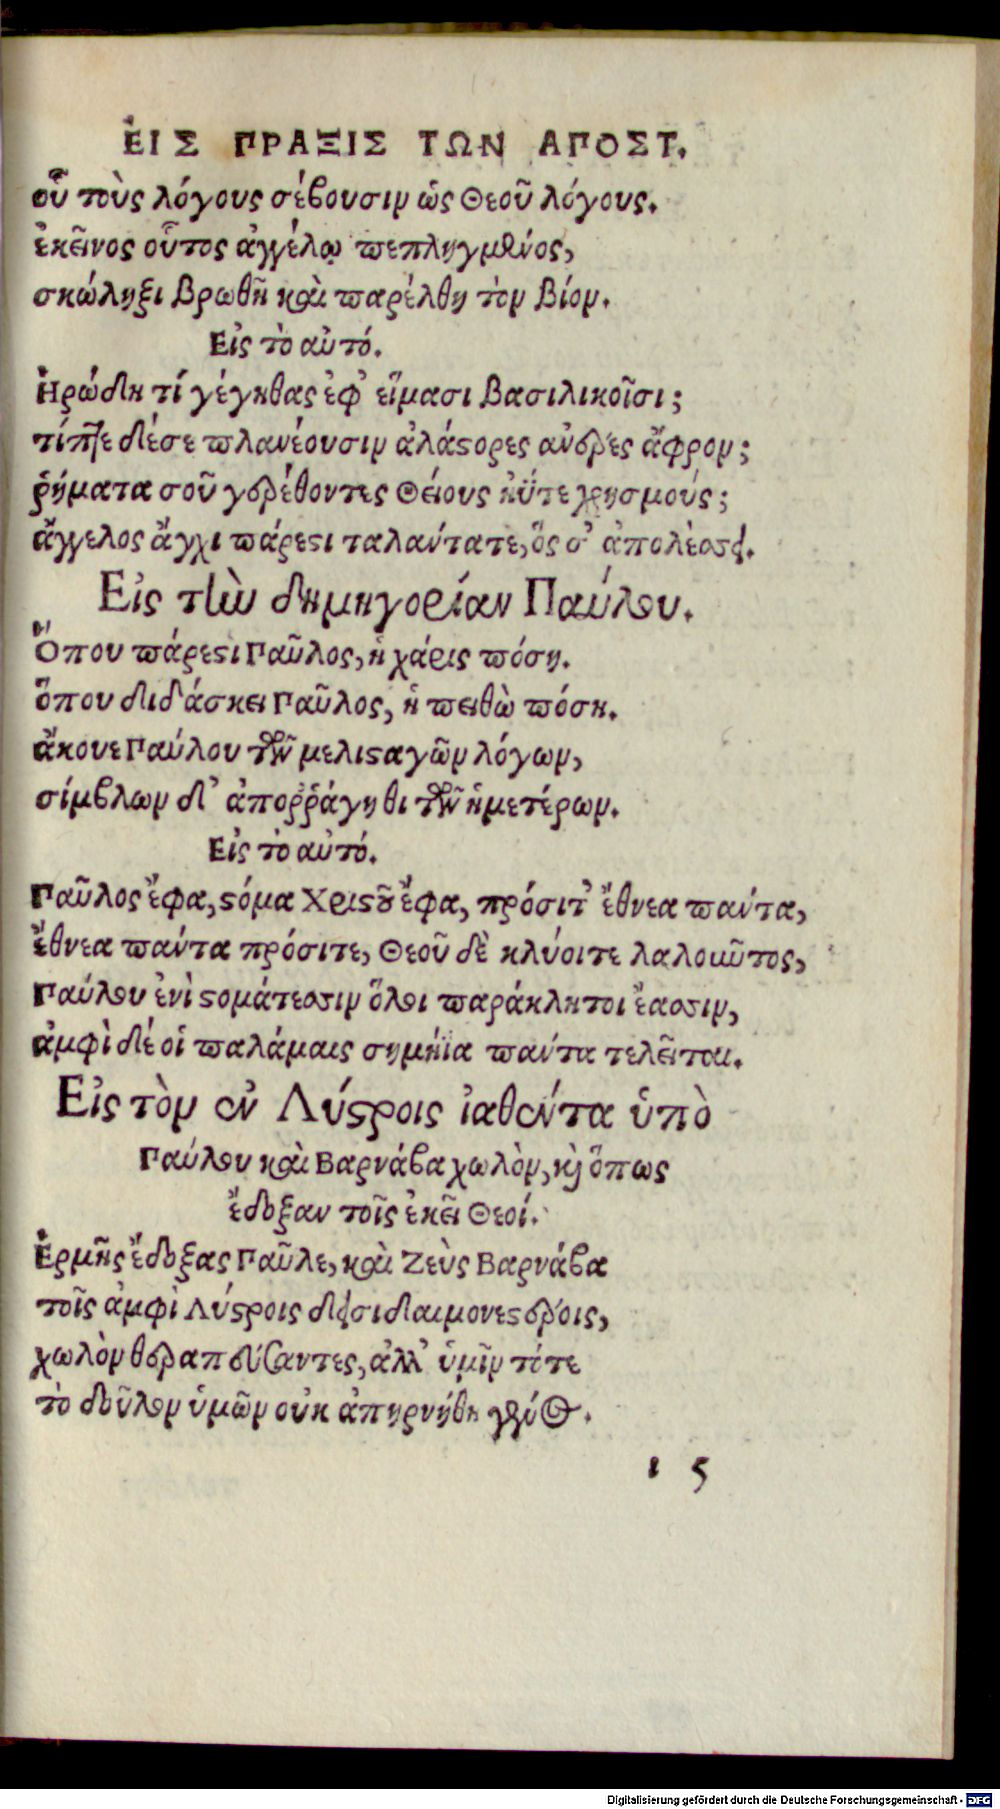 ΕΙΣ ΠΡΑΞΙΣ ΤΩΝ ΑΠΟΣΤ.
οὗ τοὺς λόγους σέβουσιν ὡς Θεοῦ λόγους.
ἐκεῖνος οὗτος ἀγγέλῳ πεπληγμένος,
σκώληξι βρωθῇ καὶ παρέλθῃ τὸν βίον.
Εἰς τὸ αὐτό.
Ἡρώδη τί γέγηθας ἐφ' εἵμασι βασιλικοῖσι;
τίπτε δέ σε πλανέουσιν ἀλάστορες ἄνδρες ἄφρον;
ῥήματα σοῦ γεραίθοντες θείους ἠΰτε χρησμούς;
ἄγγελος ἄγχι πάρεστι ταλάντατε, ὅς σ' ἀπολέσσει.
Εἰς τὴν δημηγορίαν Παύλου.
Ὅπου πάρεστι Παῦλος, ἡ χάρις πόση.
ὅπου διδάσκει Παῦλος, ἡ πειθὼ πόση.
ἄκουε Παύλου τῶν μελισταγῶν λόγων,
σίμβλων δ' ἀποῤῥάγηθι τῶν ἡμετέρων.
Εἰς τὸ αὐτό.
Παῦλος ἔφα, στόμα Χριστοῦ ἔφα, πρόσιτ' ἔθνεα πάντα,
ἔθνεα πάντα πρόσιτε, Θεοῦ δὲ κλύοιτε λαλοῦντος,
Παύλου ἐνὶ στομάτεσσιν ὅλοι παράκλητοι ἔασσιν,
ἀμφὶ δέ οἱ παλάμαις σημήϊα πάντα τελεῖται.
Εἰς τὸν ἐν Λύστροις ἰαθέντα ὑπὸ
Παύλου καὶ Βαρνάβα χωλὸν, καὶ ὅπως
ἔδοξαν τοῖς ἐκεῖ Θεοί.
Ἑρμῆς ἔδοξας Παῦλε, καὶ Ζεὺς Βαρνάβα
τοῖς ἀμφὶ Λύστροις δεισιδαιμονεστέροις,
χωλὸν θεραπεύσαντες, ἀλλ' ὑμῖν τότε
τὸ δοῦλον ὑμῶν οὐκ ἀπηρνήθη γένος.
ι 5
Digitalisierung gefördert durch die Deutsche Forschungsgemeinschaft - DFG